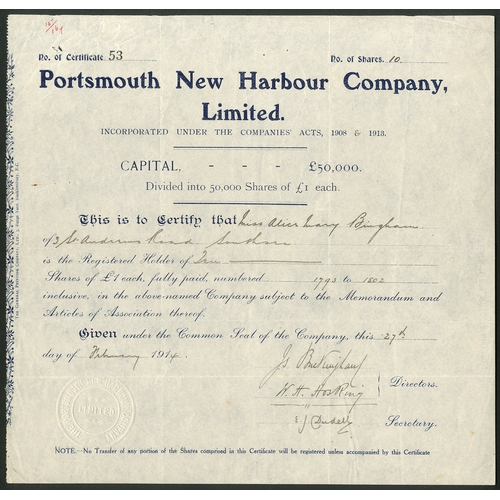 No. of Certificate 53
No. of Shares. 10
Portsmouth New Harbour Company,
Limited.
INCORPORATED UNDER THE COMPANIES' ACTS, 1908 & 1913.
CAPITAL, - - - £50,000.
Divided into 50,000 Shares of £1 each.
This is to Certify that Miss Alice Mary Bingham
of 3 St Andrews Road Southsea
is the Registered Holder of Ten
Shares of £1 each, fully paid, numbered 1793 to 1802
inclusive, in the above-named Company subject to the Memorandum and
Articles of Association thereof.
Given under the Common Seal of the Company, this 27th
day of February 1914.
Js Buckingham
W. H. Hosking
Directors.
E J
Secretary.
LIMITED
NOTE.—No Transfer of any portion of the Shares comprised in this Certificate will be registered unless accompanied by this Certificate